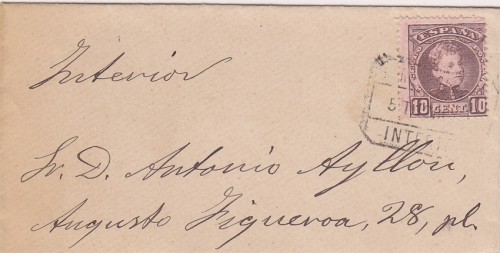 ESPAÑA
10 CENT. 10
Interior
Sr. D. Antonio Ayllon,
Augusto Figueroa, 28, pl.